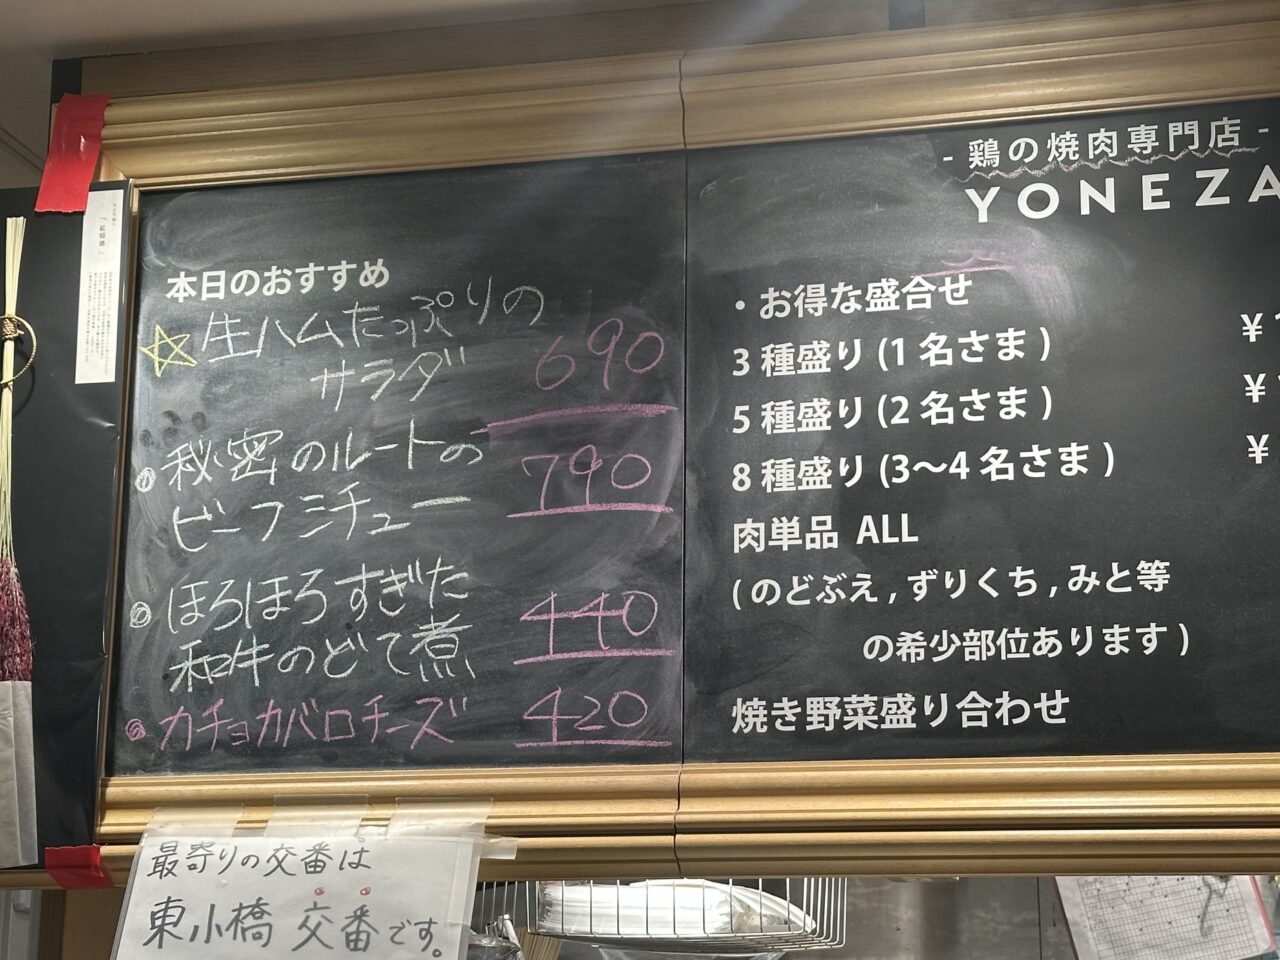 本日のおすすめ
生ハムたっぷりの
サラダ 690
秘密のルートの
ビーフシチュー 790
ほろほろすぎた
和牛のどて煮 440
カチョカバロチーズ 420
- 鶏の焼肉専門店 -
YONEZA
・お得な盛合せ
3 種盛り (1 名さま ) ¥
5 種盛り (2 名さま ) ¥
8 種盛り (3〜4 名さま ) ¥
肉単品 ALL
( のどぶえ , ずりくち , みと等
の希少部位あります )
焼き野菜盛り合わせ
最寄りの交番は
東小橋 交番です。